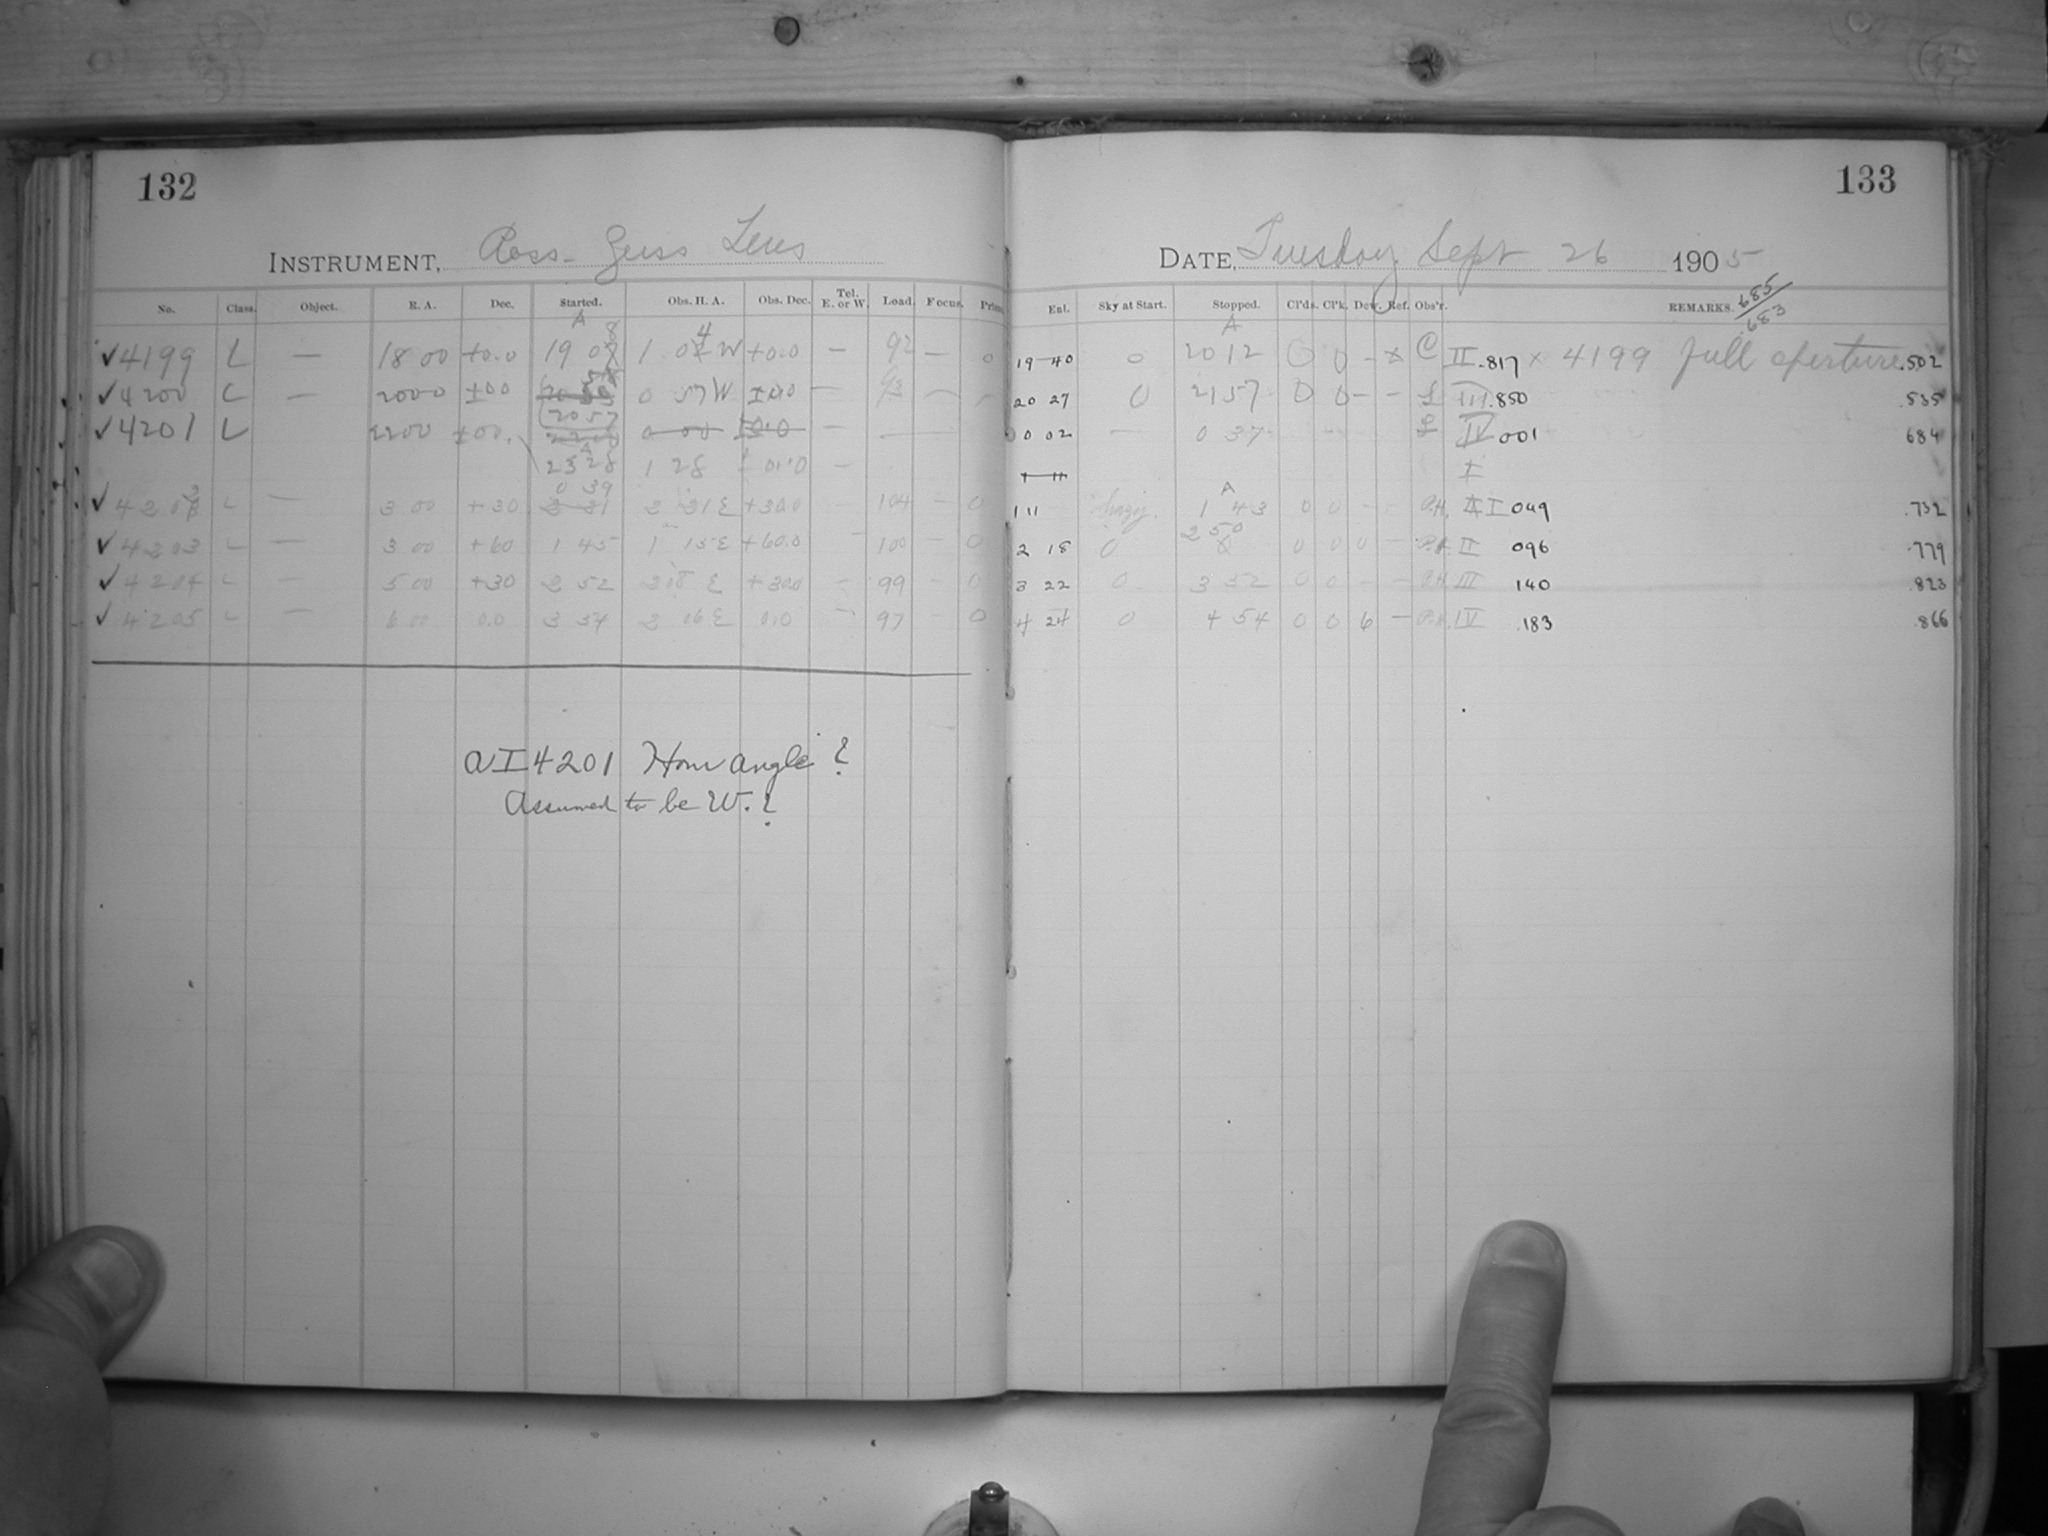 132
INSTRUMENT, Ross-Zeiss Lens
No. Class. Object. R. A. Dec. Started. Obs. H. A. Obs. Dec. Tel. E. or W. Load. Focus.
✓4199 L — 18 00 +0.0 19 08 1 04 W +0.0 — 92 — 0
✓4200 L — 2000 ±00 0 57 W ±0.0 —
2057
✓4201 L 2200 ±00.
23 28 1 28 —
0 39
✓ L — 3 00 +30 2 21 E +30.0 — 104 — 0
✓4203 L — 3 00 +60 1 45 1 15 E +60.0 — 100 — 0
✓4204 L — 5 00 +30 2 52 2 08 E +30.0 — 99 0
✓4205 L — 6 00 0.0 3 54 2 06 E 0.0 — 97 — 0
aI4201 Hour angle ?
Assumed to be W. ?
133
DATE, Tuesday Sept 26 1905
Ent. Sky at Start. Stopped. Cl'ds. Cl'k. Dew. Ref. Obs'r. REMARKS. .685
.683
A
19 40 0 2012 0 0 - x C II .817 x 4199 full aperture .502
20 27 0 2157 0 0 - - III .850 .535
0 02 — 0 37 IV 001 684
1 11
A
1 11 1 43 0 0 - - I 049 .732
2 50
2 18 0 0 0 0 - II 096 .779
3 22 0 3 52 0 0 - - III 140 .823
4 24 0 4 54 0 0 6 - IV .183 .866